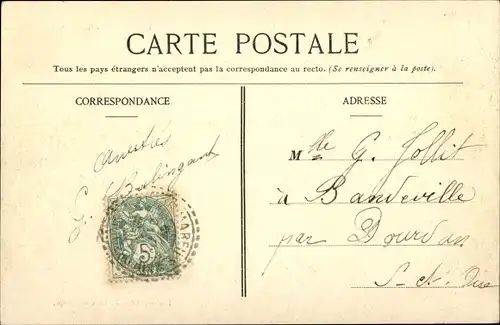 CARTE POSTALE
Tous les pays étrangers n'acceptent pas la correspondance au recto. (Se renseigner à la poste).
CORRESPONDANCE
ADRESSE
Amitiés
G.
Mlle G. Jollit
à Bandeville
par Dourdan
S-et-Oise
5c